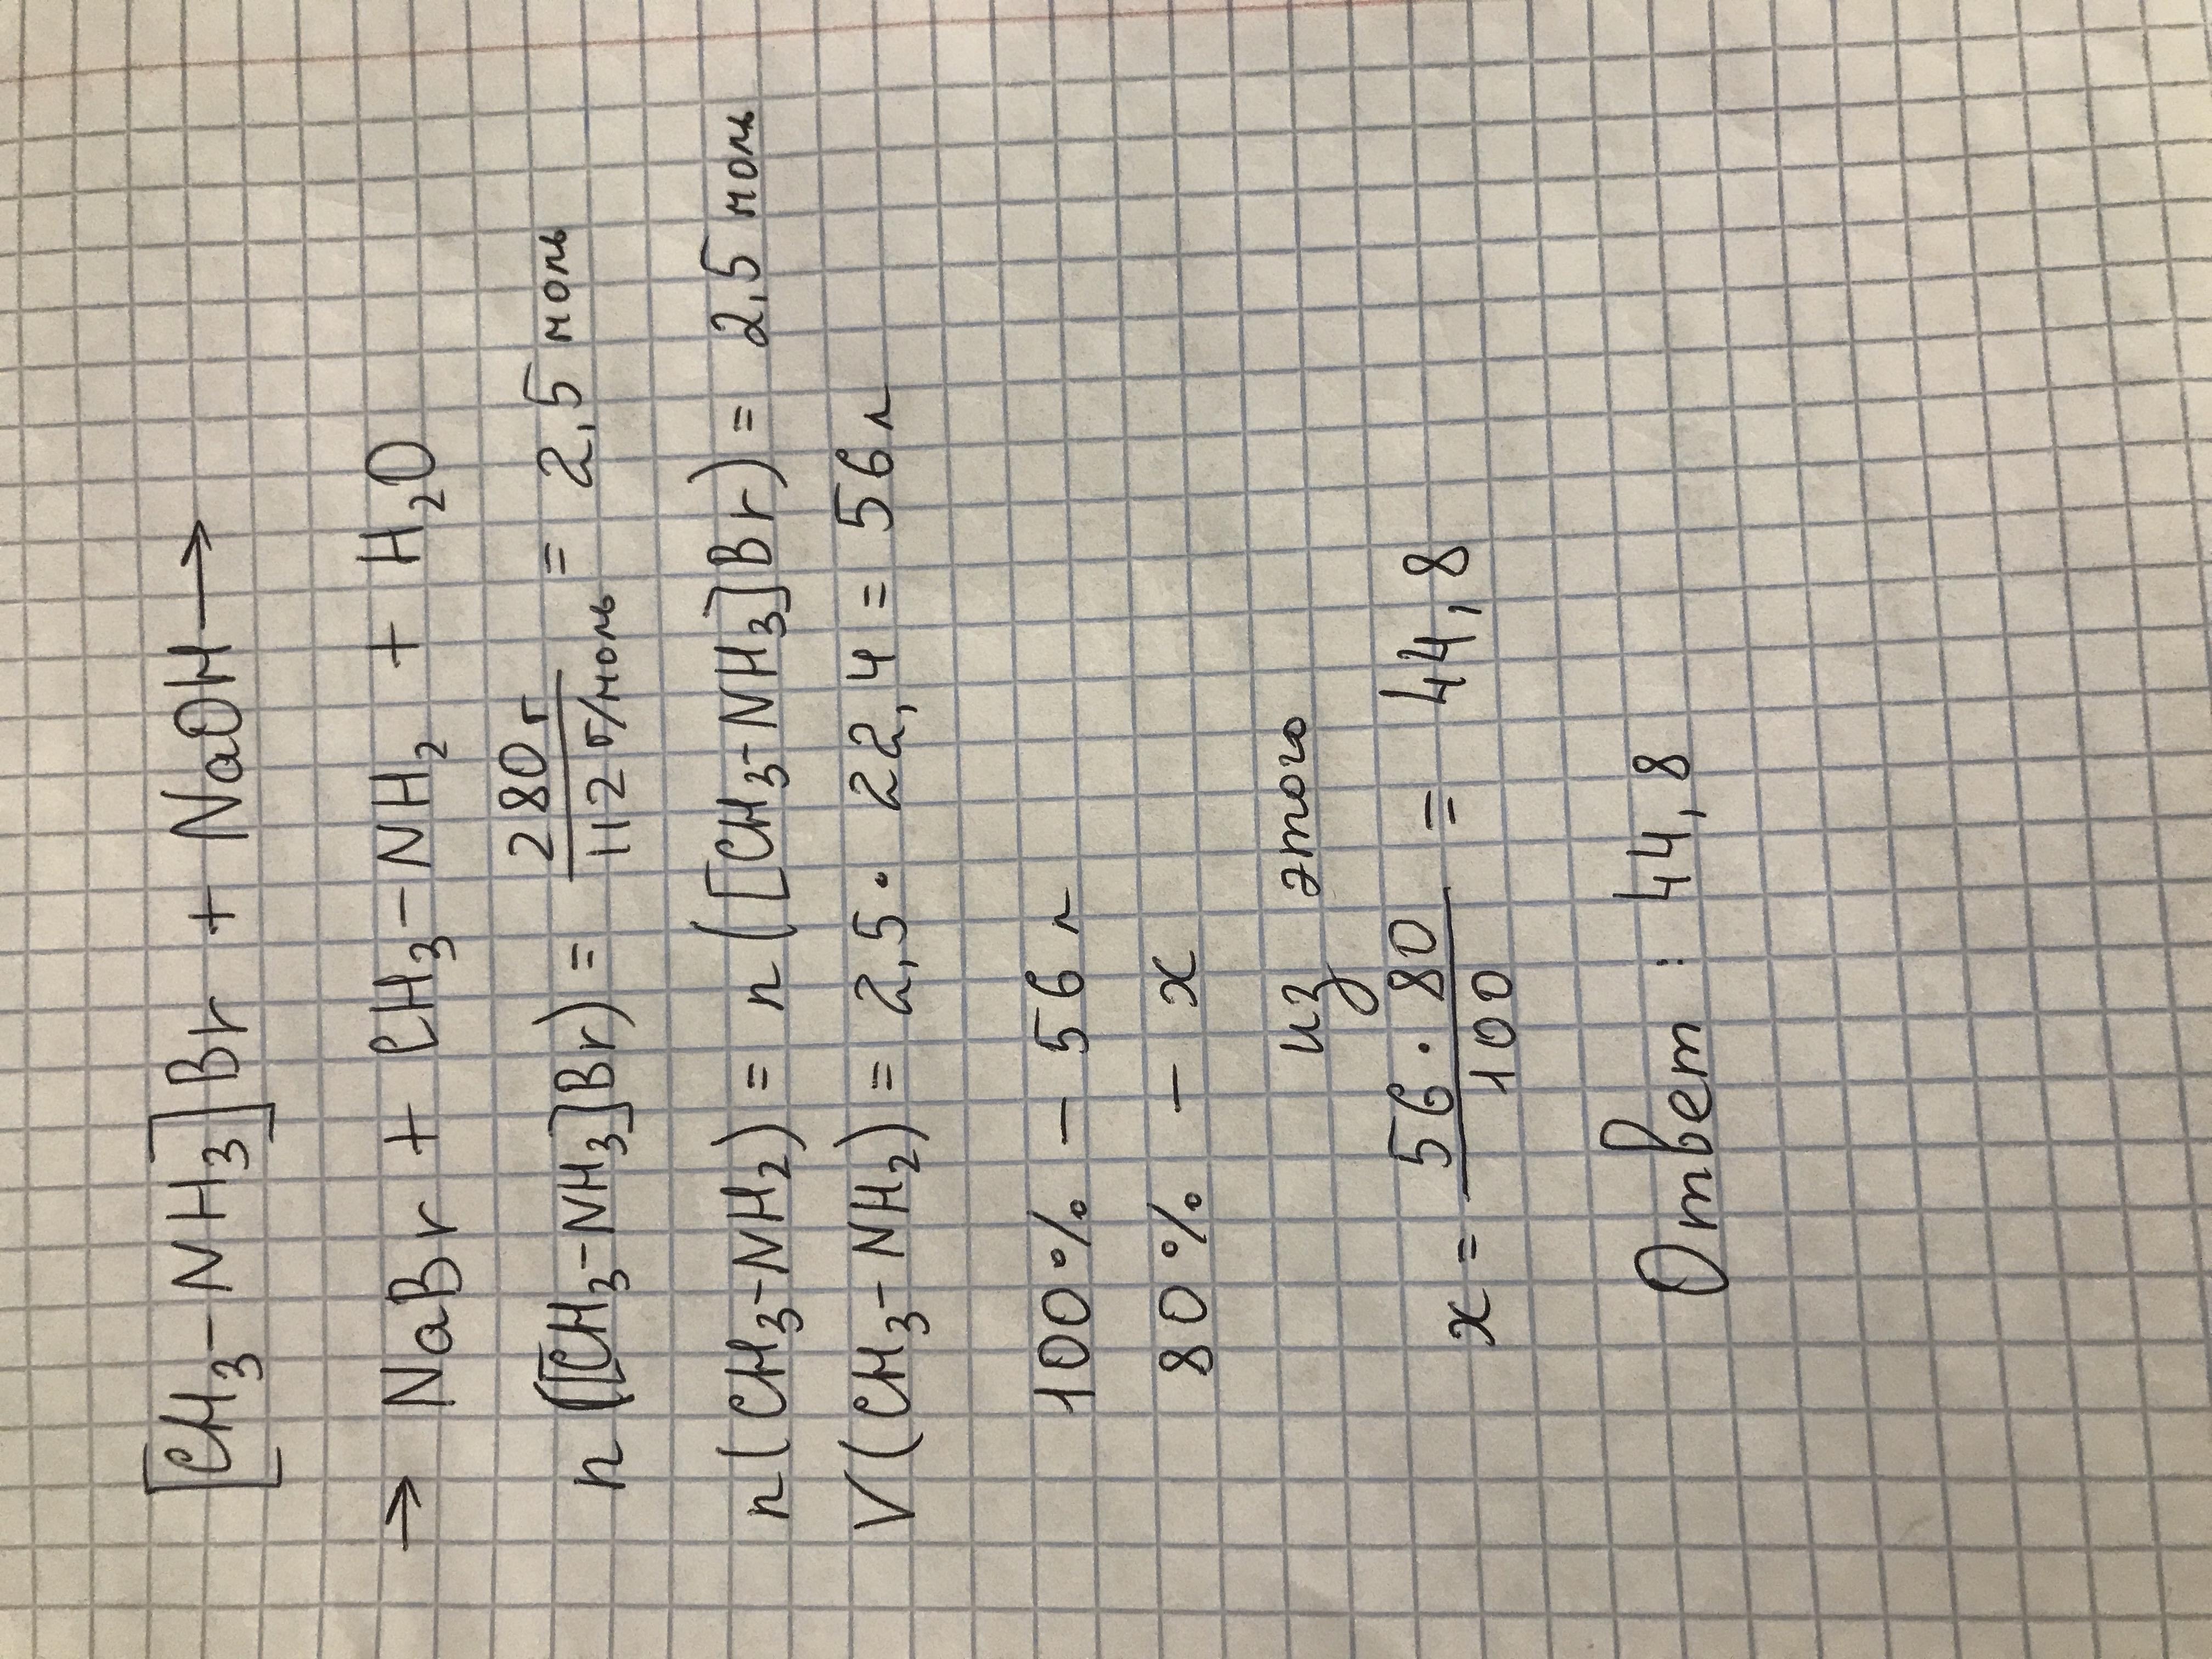 [CH₃-NH₃]Br + NaOH →
→ NaBr + CH₃-NH₂ + H₂O
n([CH₃-NH₃]Br) = 280 г / 112 г/моль = 2,5 моль
n(CH₃-NH₂) = n([CH₃-NH₃]Br) = 2,5 моль
V(CH₃-NH₂) = 2,5 · 22,4 = 56 л
100% - 56 л
80% - x
из этого
x = 56 · 80 / 100 = 44,8
Ответ: 44,8